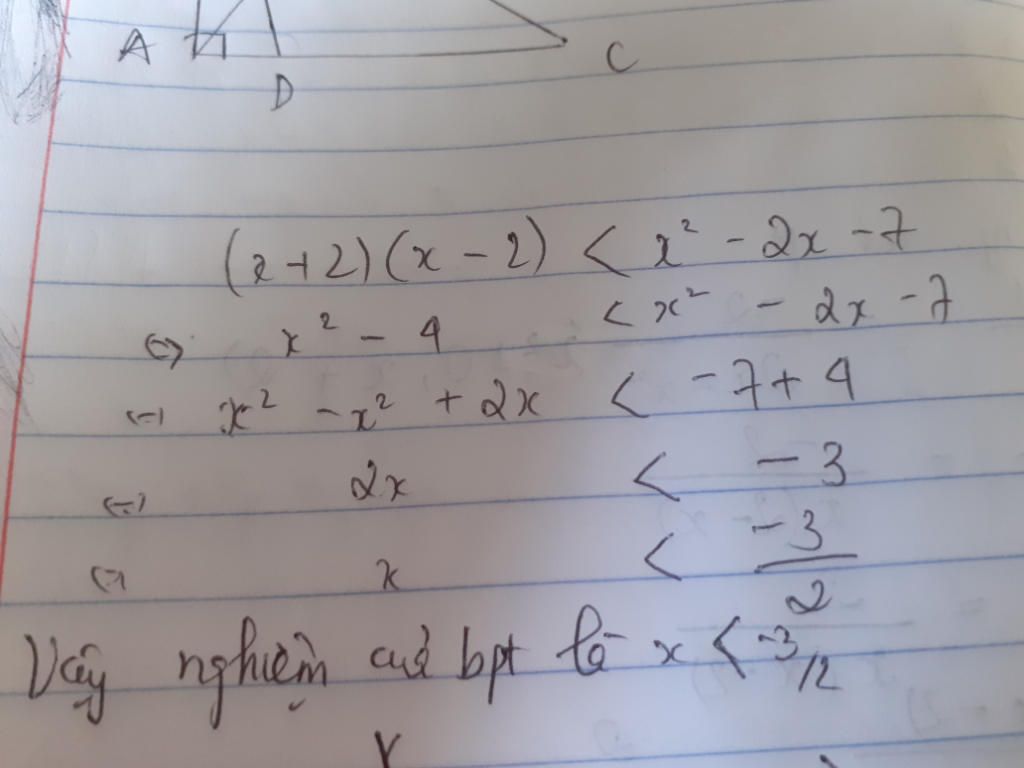 A
C
D
(x+2)(x-2) < x² - 2x - 7
⇔ x² - 4 < x² - 2x - 7
⇔ x² - x² + 2x < -7 + 4
⇔ 2x < -3
⇔ x < -3/2
Vậy nghiệm củả bpt là x < -3/2